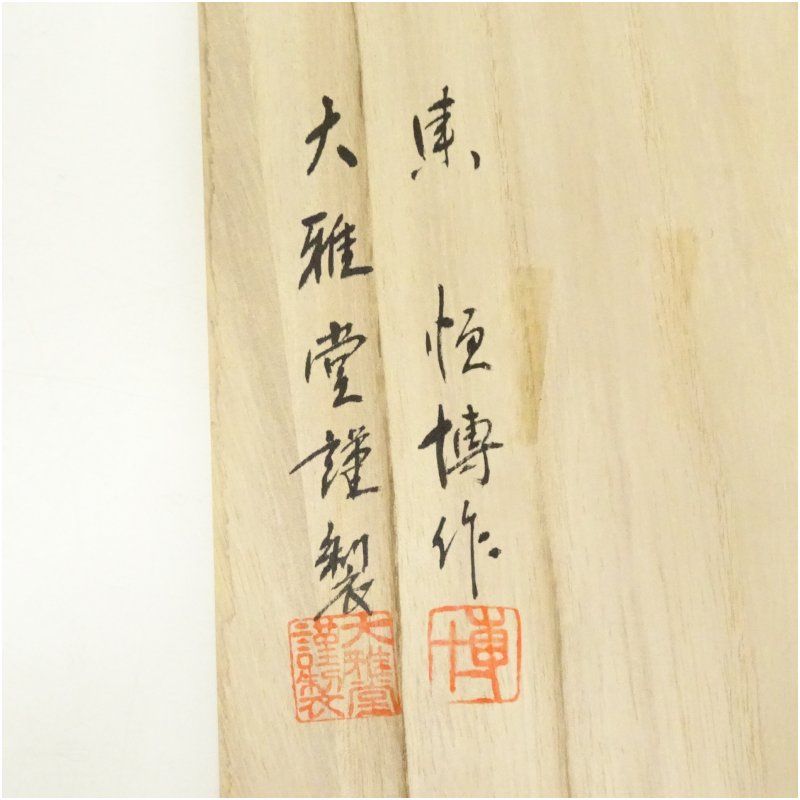 東 恒博作
大雅堂謹製
博
大雅堂
謹製